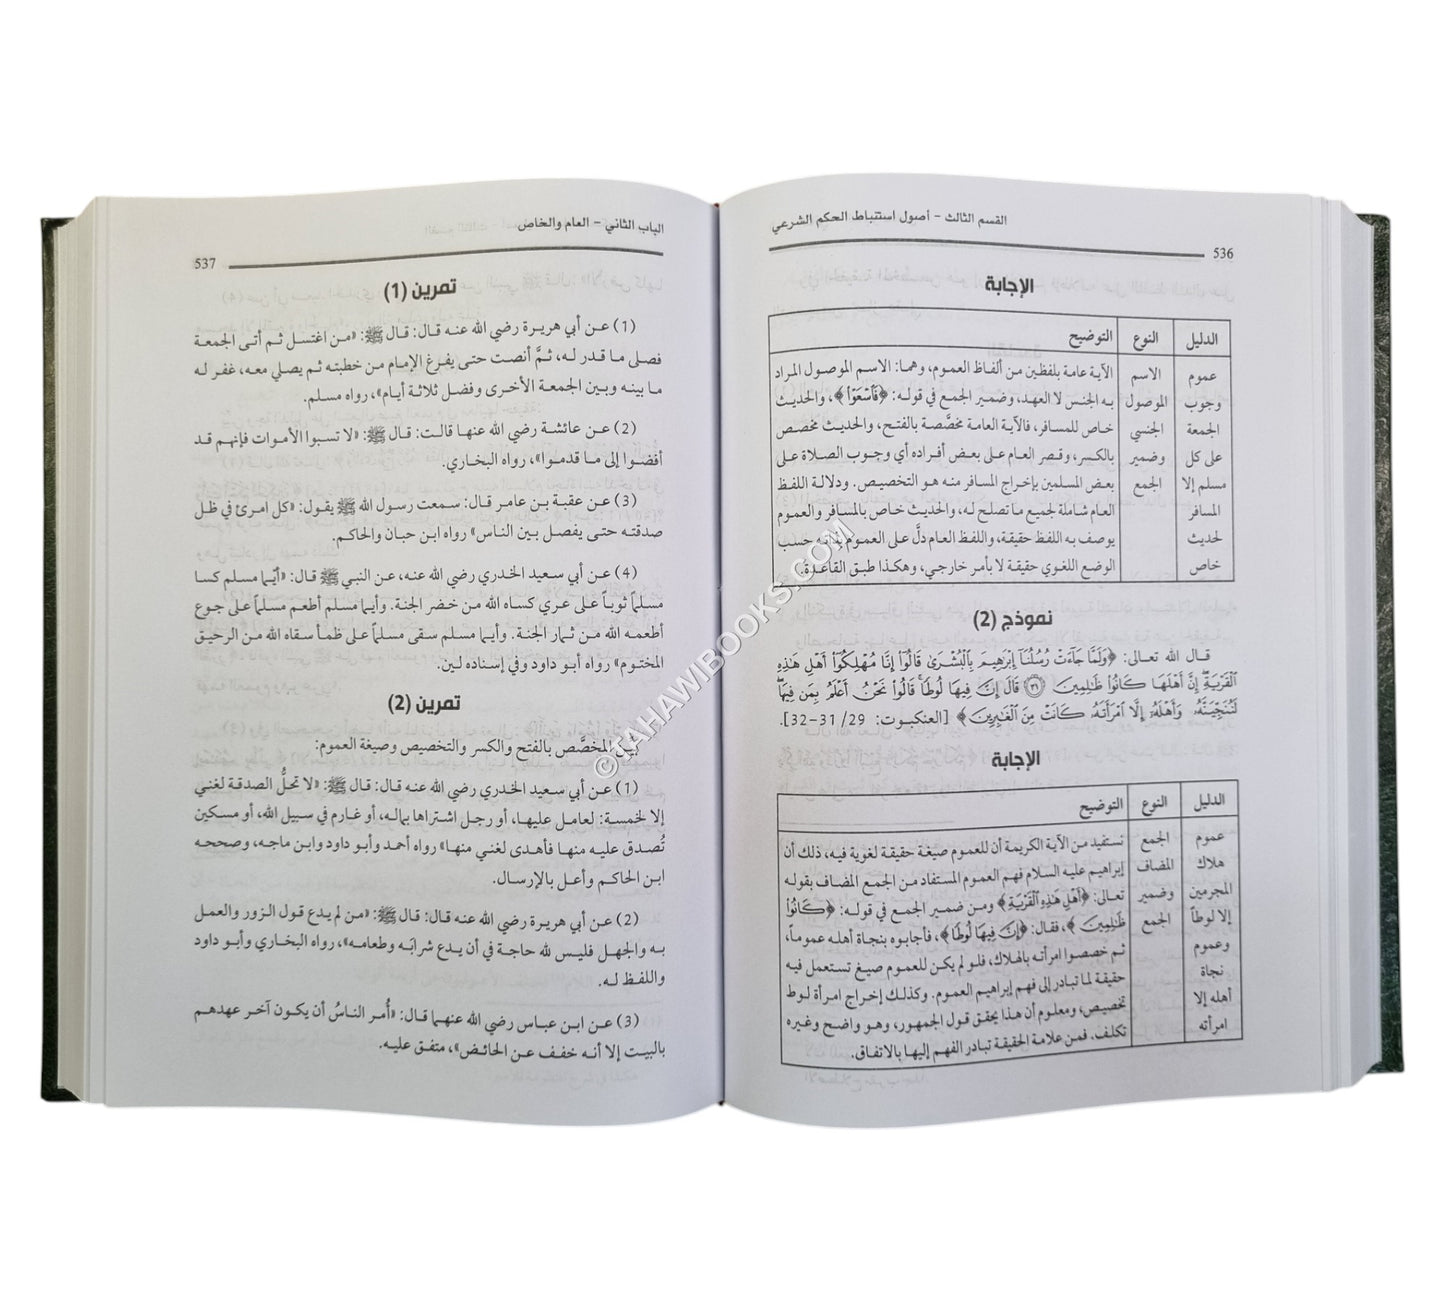 القسم الثالث - أصول استنباط الحكم الشرعي
536
الإجابة
الدليل
النوع
التوضيح
عموم
وجوب
الجمعة
على كل
مسلم إلا
المسافر
لحديث
خاص
الاسم
الموصول
الجنسي
وضمير
الجمع
الآية عامة بلفظين من ألفاظ العموم، وهما: الاسم الموصول المراد
به الجنس لا العهد، وضمير الجمع في قوله: ﴿فَٱسْعَوْا۟﴾، والحديث
خاص للمسافر، فالآية العامة مخصَّصة بالفتح، والحديث مخصص
بالكسر، وقصر العام على بعض أفراده أي وجوب الصلاة على
بعض المسلمين بإخراج المسافر منه هو التخصيص. ودلالة اللفظ
العام شاملة لجميع ما تصلح له، والحديث خاص بالمسافر والعموم
يوصف به اللفظ حقيقة، واللفظ العام دلَّ على العموم بذاته حسب
الوضع اللغوي حقيقة لا بأمر خارجي، وهكذا طبق القاعدة.
نموذج (2)
قال الله تعالى: ﴿وَلَمَّا جَآءَتْ رُسُلُنَآ إِبْرَٰهِيمَ بِٱلْبُشْرَىٰ قَالُوٓا۟ إِنَّا مُهْلِكُوٓا۟ أَهْلِ هَٰذِهِ
ٱلْقَرْيَةِ إِنَّ أَهْلَهَا كَانُوا۟ ظَٰلِمِينَ ۝٣١ قَالَ إِنَّ فِيهَا لُوطًا قَالُوا۟ نَحْنُ أَعْلَمُ بِمَن فِيهَا
لَنُنَجِّيَنَّهُۥ وَأَهْلَهُۥٓ إِلَّا ٱمْرَأَتَهُۥ كَانَتْ مِنَ ٱلْغَٰبِرِينَ﴾ [العنكبوت: 29/ 31-32].
الإجابة
الدليل
النوع
التوضيح
عموم
هلاك
المجرمين
إلا لوطاً
وعموم
نجاة
أهله إلا
امرأته
الجمع
المضاف
وضمير
الجمع
نستفيد من الآية الكريمة أن للعموم صيغة حقيقة لغوية فيه، ذلك أن
إبراهيم عليه السلام فهم العموم المستفاد من الجمع المضاف بقوله
تعالى: ﴿أَهْلِ هَٰذِهِ ٱلْقَرْيَةِ﴾ ومن ضمير الجمع في قوله: ﴿كَانُوا۟
ظَٰلِمِينَ﴾، فقال: ﴿إِنَّ فِيهَا لُوطًا﴾، فأجابوه بنجاة أهله عموماً،
ثم خصصوا امرأته بالهلاك، فلو لم يكن للعموم صيغ تستعمل فيه
حقيقة لما تبادر إلى فهم إبراهيم العموم. وكذلك إخراج امرأة لوط
تخصيص، ومعلوم أن هذا يحقق قول الجمهور، وهو واضح وغيره
تكلف. فمن علامة الحقيقة تبادر الفهم إليها بالاتفاق.
الباب الثاني - العام والخاص
537
تمرين (1)
(1) عن أبي هريرة رضي الله عنه قال: قال ﷺ: «من اغتسل ثم أتى الجمعة
فصلى ما قدر له، ثمَّ أنصت حتى يفرغ الإمام من خطبته ثم يصلي معه، غفر له
ما بينه وبين الجمعة الأخرى وفضل ثلاثة أيام»، رواه مسلم.
(2) عن عائشة رضي الله عنها قالت: قال ﷺ: «لا تسبوا الأموات فإنهم قد
أفضوا إلى ما قدموا»، رواه البخاري.
(3) عن عقبة بن عامر قال: سمعت رسول الله ﷺ يقول: «كل امرئ في ظل
صدقته حتى يفصل بين الناس» رواه ابن حبان والحاكم.
(4) عن أبي سعيد الخدري رضي الله عنه، عن النبي ﷺ قال: «أيّما مسلم كسا
مسلماً ثوباً على عري كساه الله من خضر الجنة. وأيما مسلم أطعم مسلماً على جوع
أطعمه الله من ثمار الجنة. وأيما مسلم سقى مسلماً على ظمأ سقاه الله من الرحيق
المختوم» رواه أبو داود وفي إسناده لين.
تمرين (2)
بيِّن المخصَّص بالفتح والكسر والتخصيص وصيغة العموم:
(1) عن أبي سعيد الخدري رضي الله عنه قال: قال ﷺ: «لا تحلُّ الصدقة لغني
إلا لخمسة: لعامل عليها، أو رجل اشتراها بماله، أو غارم في سبيل الله، أو مسكين
تُصدق عليه منها فأهدى لغني منها» رواه أحمد وأبو داود وابن ماجه، وصححه
ابن الحاكم وأعل بالإرسال.
(2) عن أبي هريرة رضي الله عنه قال: قال ﷺ: «من لم يدع قول الزور والعمل
به والجهل فليس لله حاجة في أن يدع شرابَه وطعامه»، رواه البخاري وأبو داود
واللفظ له.
(3) عن ابن عباس رضي الله عنهما قال: «أُمر الناسُ أن يكون آخر عهدهم
بالبيت إلا أنه خفف عن الحائض»، متفق عليه.
©TAHAWIBOOKS.COM